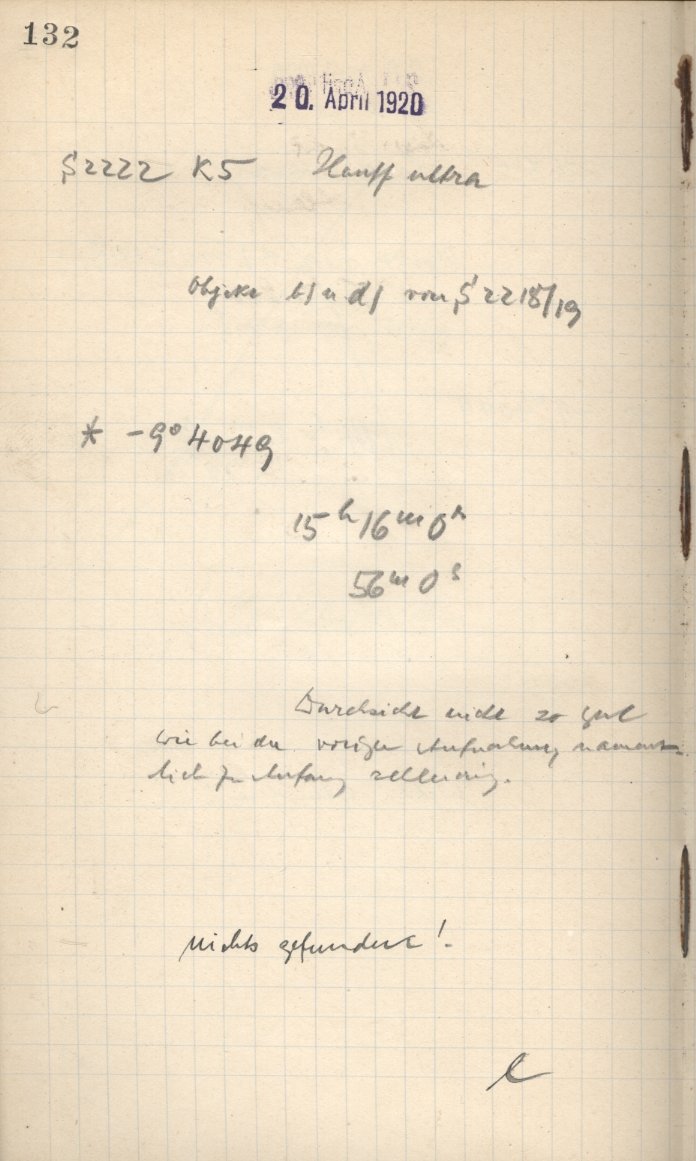 132
20. April 1920
S 2222 K5 Hauff ultra
Objekte b) u d) von S 2218/19
* -9° 4049
15ʰ 16ᵐ 0ˢ
56ᵐ 0ˢ
Durchsicht nicht so gut
wie bei der vorigen Aufnahme, nament-
lich zu Anfang
nichts gefunden!